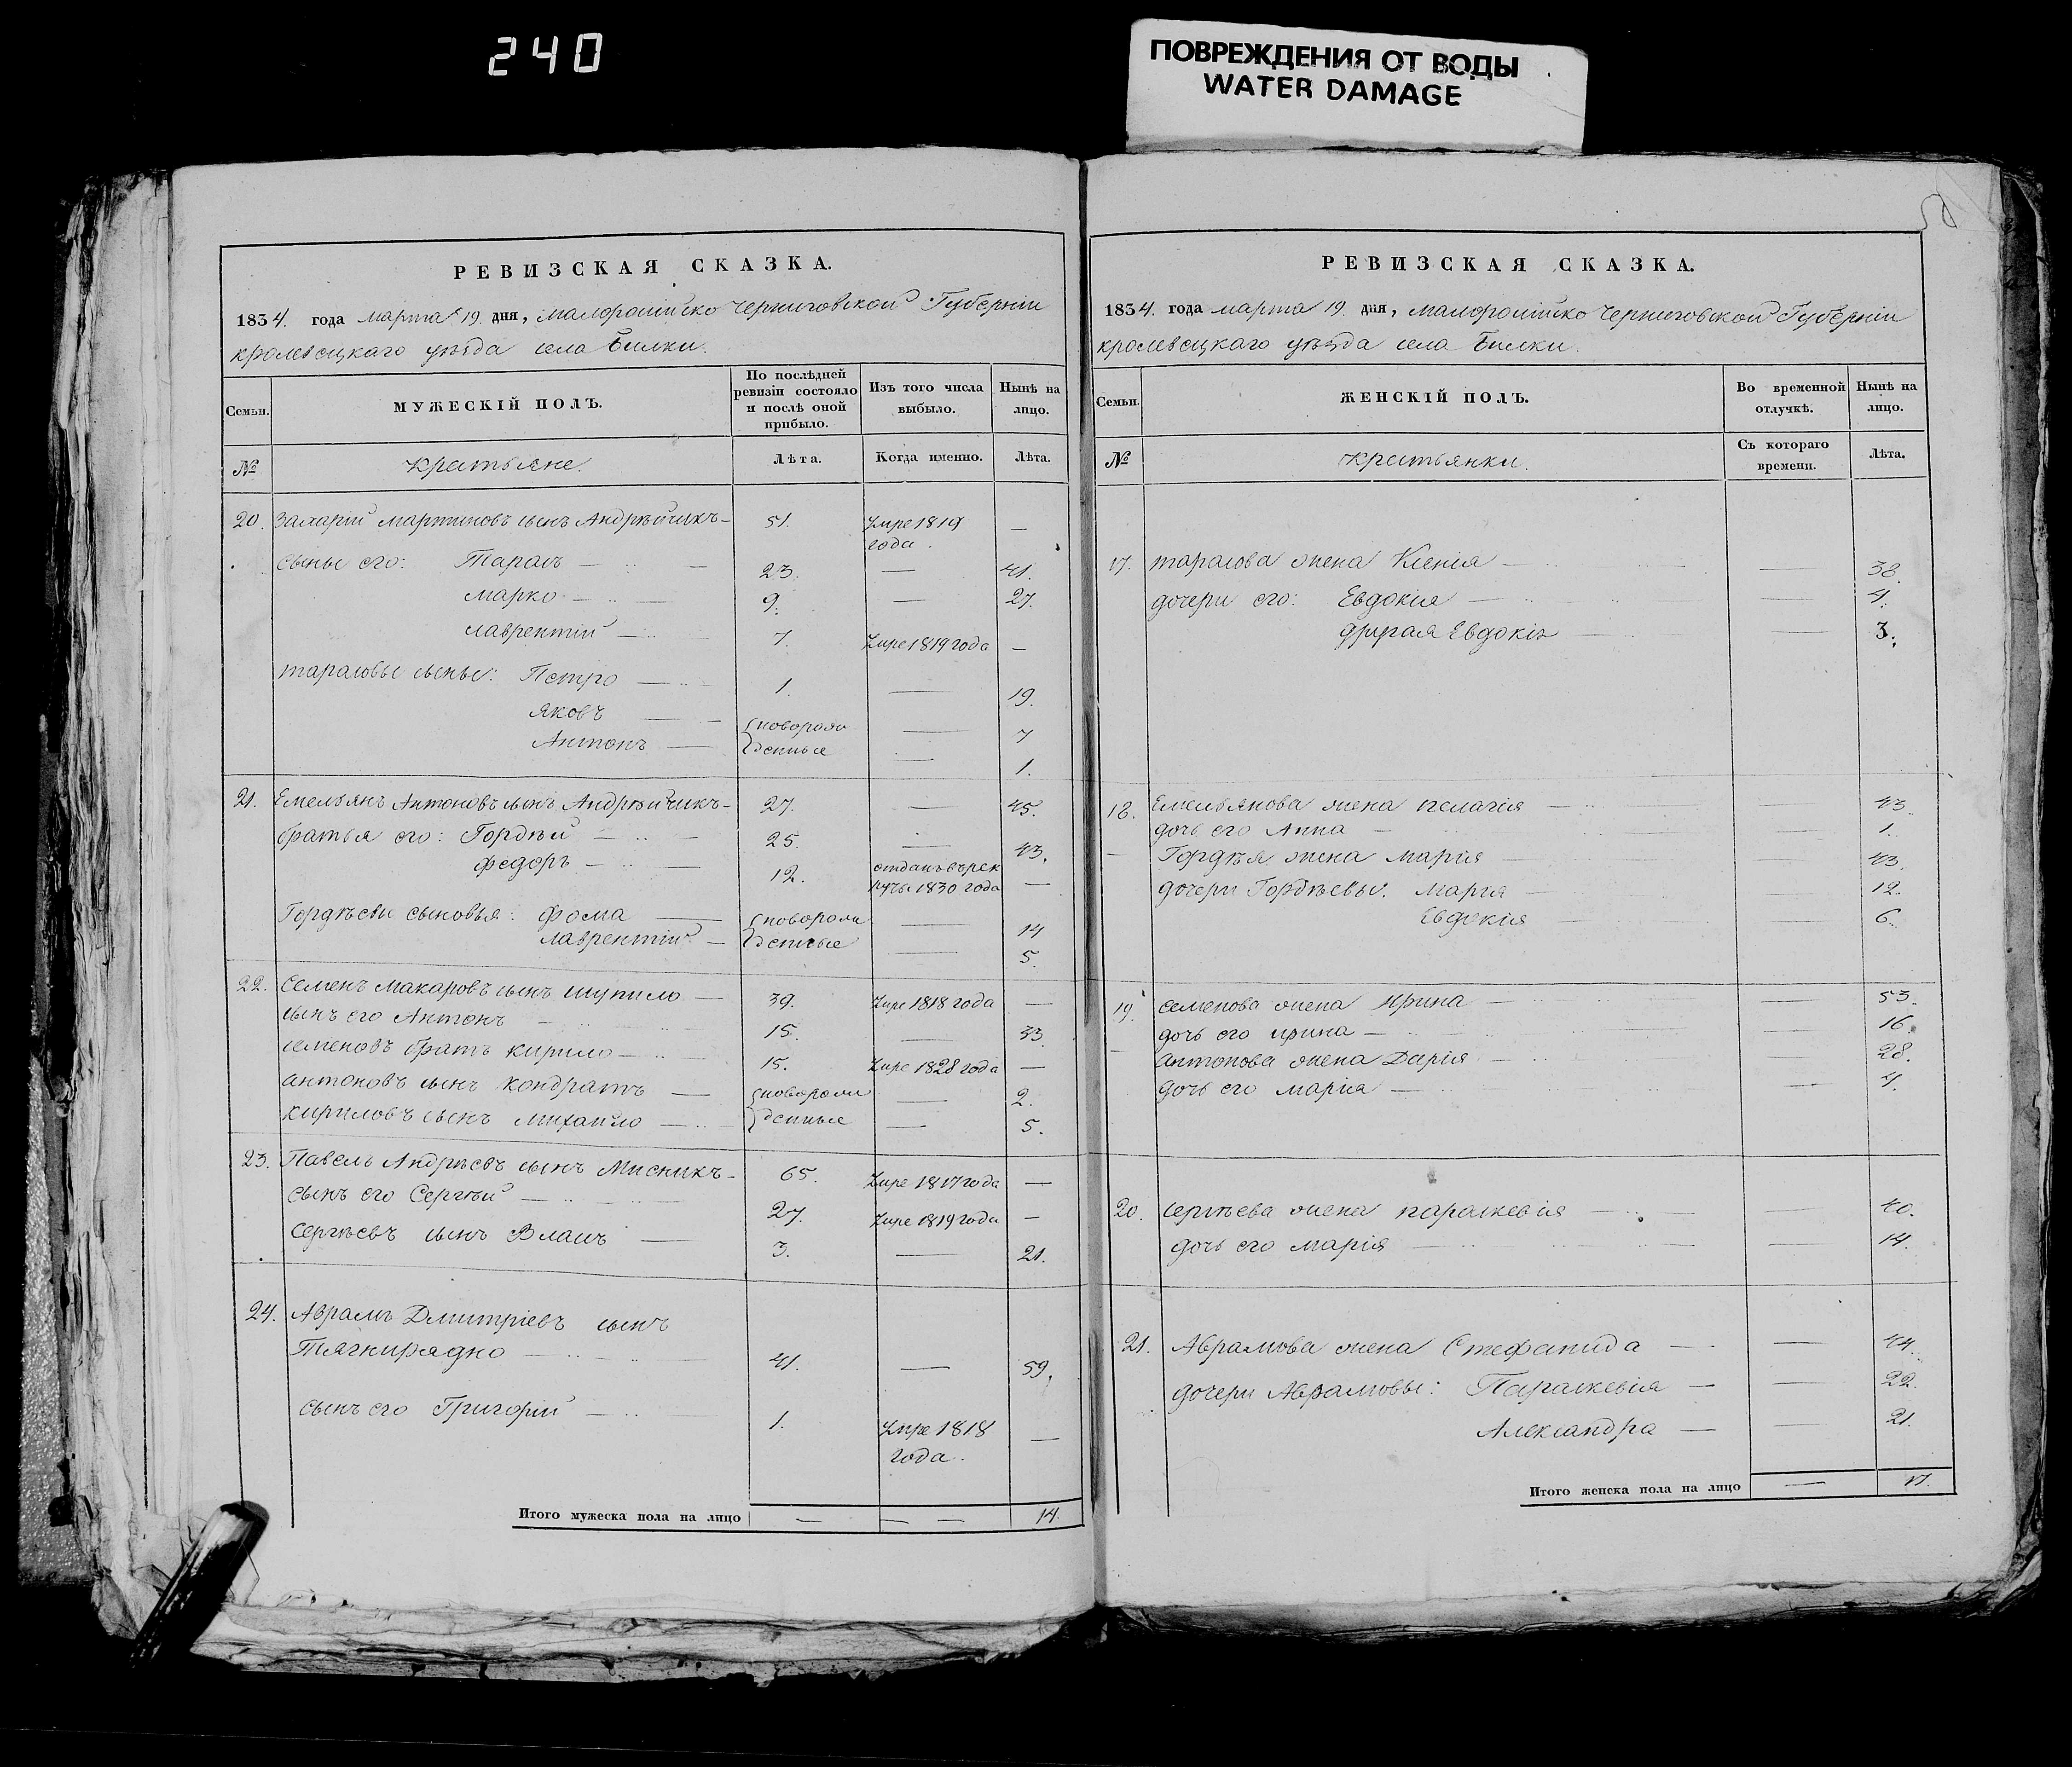 240
ПОВРЕЖДЕНИЯ ОТ ВОДЫ
WATER DAMAGE
РЕВИЗСКАЯ СКАЗКА.
1834. года марта 19. дня, малоросійско Черниговской Губерніи
кролевецкаго уѣзда села Билки.
Семьи. МУЖЕСКІЙ ПОЛЪ. По послѣдней ревизіи состояло и послѣ оной прибыло. Изъ того числа выбыло. Нынѣ на лицо.
№ крестьяне. Лѣта. Когда именно. Лѣта.
20. Захарій мартиновъ сынъ Андрѣйчикъ — 51. Умре 1819 года. —
сыны его: Тарасъ — 23. — 41.
марко — 9. — 27.
лаврентій — 7. Умре 1819 года —
тарасовы сыны: Петро — 1. — 19.
яковъ — новорож — 7
Антонъ — денные — 1.
21. Емельянъ Антоновъ сынъ Андрѣйчикъ — 27. — 45.
братья его: Гордѣй — 25. — 43.
федоръ — 12. отданъ въ рек
руты 1830 года —
Гордѣевы сыновья: фома — новорож — 14
лаврентій — денные — 5.
22. Семенъ макаровъ сынъ шупило — 39. Умре 1818 года —
сынъ его Антонъ — 15. — 33
семеновъ братъ кирило — 15. Умре 1828 года —
антоновъ сынъ кондратъ — новорож — 2.
кириловъ сынъ михайло — денные — 5.
23. Павелъ Андрѣевъ сынъ Мисникъ — 65. Умре 1817 года —
сынъ его Сергѣй — 27. Умре 1819 года —
Сергѣевъ сынъ Власъ — 3. — 21.
24. Аврамъ Дмитріевъ сынъ
Тягнирядно — 41. — 59.
сынъ его Григорій — 1. Умре 1818
года. —
Итого мужеска пола на лицо — — — 14.
РЕВИЗСКАЯ СКАЗКА.
1834. года марта 19. дня, малоросійско Черниговской Губерніи
кролевецкаго уѣзда села Билки.
Семьи. ЖЕНСКІЙ ПОЛЪ. Во временной отлучкѣ. Нынѣ на лицо.
№ крестьянки. Съ котораго времени. Лѣта.
17. тарасова жена Ксенія — — 38.
дочери его: Евдокія — — 4.
другая Евдокія — — 3.
18. Емельянова жена пелагія — — 43
дочь его Анна — — 1.
Гордѣя жена марія — — 43
дочери Гордѣевы: марія — — 12.
Евдокія — — 6.
19. семенова жена Ирина — — 53.
дочь его ирина — — 16.
антонова жена Дарія — — 28.
дочь его марія — — 4.
20. сергѣева жена параскевія — — 40.
дочь его марія — — 14.
21. Аврамова жена Стефанида — — 44.
дочери Аврамовы: Параскевія — — 22.
Александра — — 21.
Итого женска пола на лицо — 17.